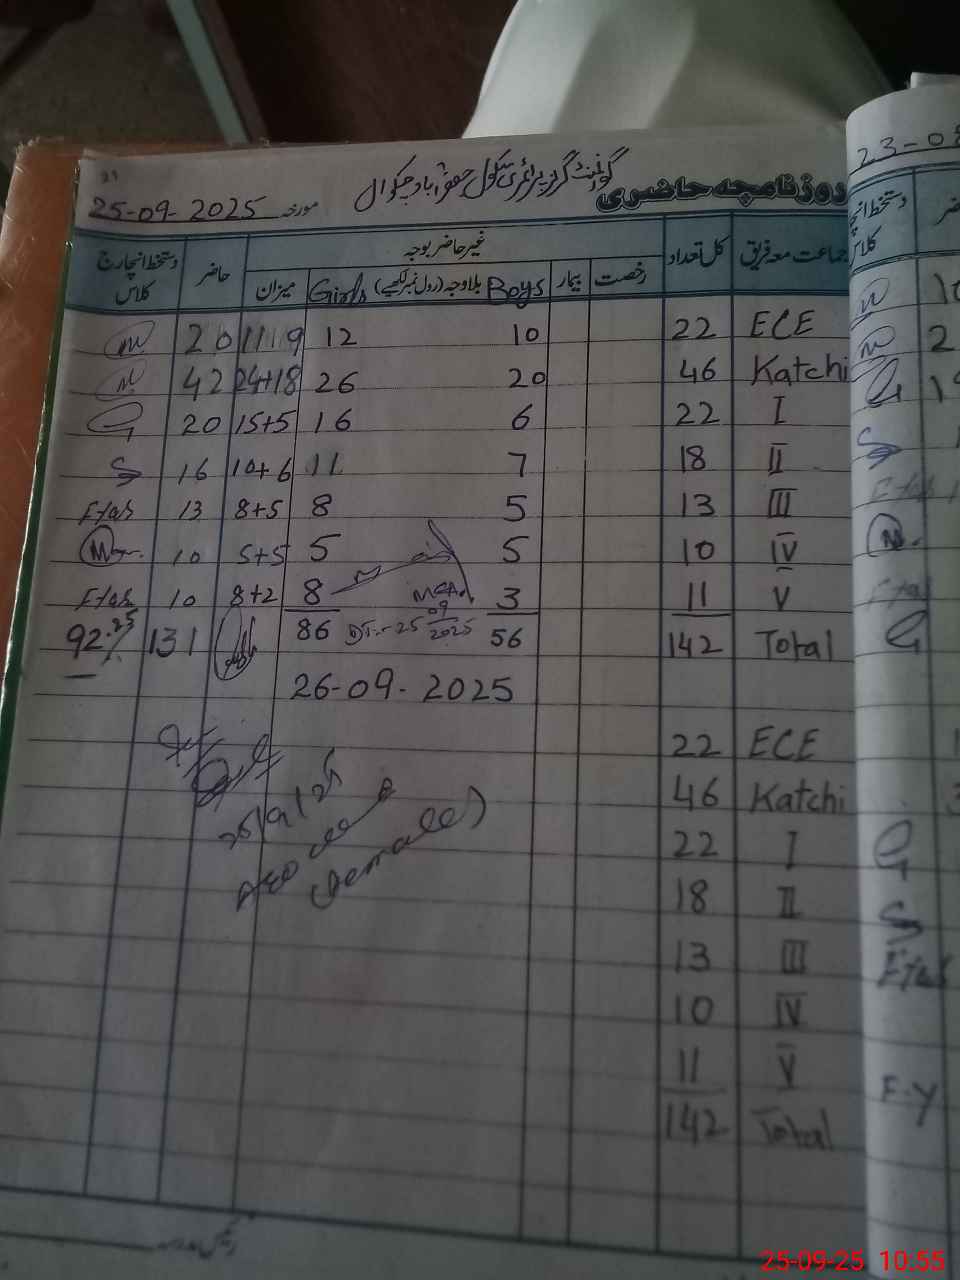 گورنمنٹ گرلز پرائمری سکول جعفر آباد چکوال
روزنامچہ حاضری
مورخہ 25-09-2025
جماعت معہ فریق کل تعداد غیر حاضر بوجہ حاضر دستخط انچارج کلاس
رخصت بیمار Boys بلاوجہ (رول نمبر لکھیے) Girls میزان
ECE 22 10 12 11 9 20
Katchi 46 20 26 24+18 42
I 22 6 16 15+5 20
II 18 7 11 10+6 16
III 13 5 8 8+5 13
IV 10 5 5 5+5 10
V 11 3 8 8+2 10
Total 142 56 86 131 92.25%
DT:- 25 09 2025
26-09-2025
ECE 22
Katchi 46
I 22
II 18
III 13
IV 10
V 11
Total 142
25/9/25
(female)
23-0
دستخط انچارج
کلاس
F.Y
25-09-25 10:55